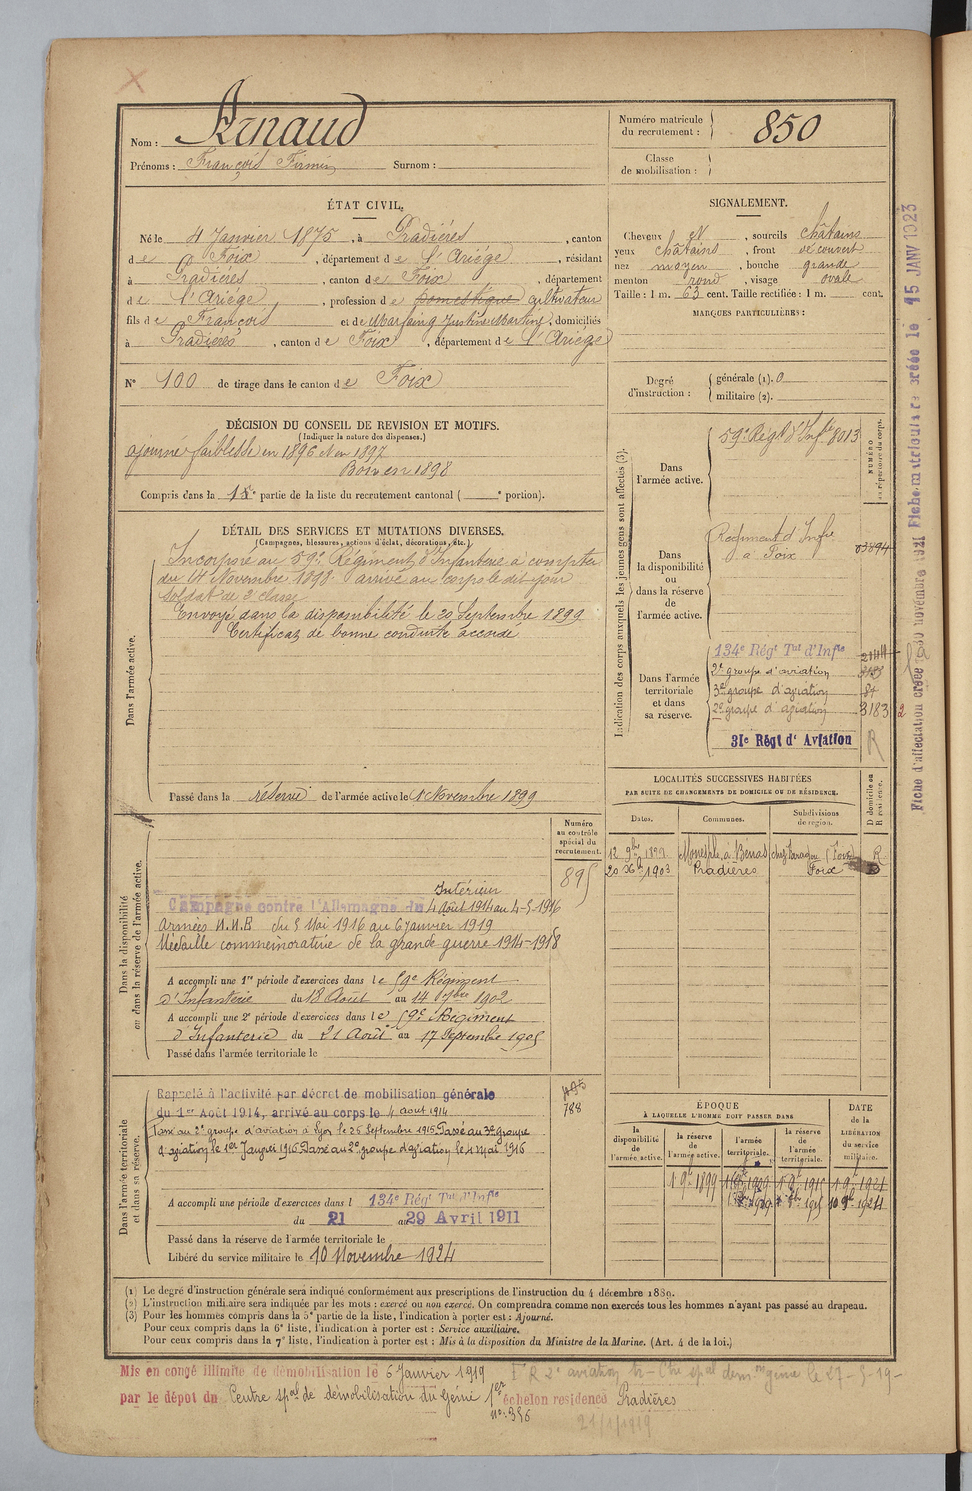 Nom : Arnaud
Prénoms : François Firmin Surnom :
Numéro matricule du recrutement : 850
Classe de mobilisation :
ÉTAT CIVIL.
Né le 4 Janvier 1875, à Pradières, canton
de Foix, département de l'Ariège, résidant
à Pradières, canton de Foix, département
de l'Ariège, profession de domestique cultivateur
fils de François et de Marfaing Justine Martine, domiciliés
à Pradières, canton de Foix, département de l'Ariège
N° 100 de tirage dans le canton de Foix
SIGNALEMENT.
Cheveux et, sourcils châtains
yeux châtains, front découvert
nez moyen, bouche grande
menton rond, visage ovale
Taille : 1 m. 63 cent. Taille rectifiée : 1 m. cent.
MARQUES PARTICULIÈRES :
Degré d'instruction :
générale (1). 0
militaire (2).
DÉCISION DU CONSEIL DE REVISION ET MOTIFS.
(Indiquer la nature des dispenses.)
ajourné faiblesse en 1896 et en 1897
Bon en 1898
Compris dans la 1re partie de la liste du recrutement cantonal ( e portion).
DÉTAIL DES SERVICES ET MUTATIONS DIVERSES.
(Campagnes, blessures, actions d'éclat, décorations, etc.)
Dans l'armée active.
Incorporé au 59e Régiment d'Infanterie à compter
du 14 Novembre 1898 arrivé au corps le dit jour
Soldat de 2e classe
Envoyé dans la disponibilité le 20 Septembre 1899
Certificat de bonne conduite accordé
Passé dans la réserve de l'armée active le 1 Novembre 1899
Indication des corps auxquels les jeunes gens sont affectés (3).
NUMÉRO au répertoire du corps.
Dans l'armée active.
59e Régt d'Infie 8013
Dans la disponibilité ou dans la réserve de l'armée active.
Régiment d'Infie
à Foix 03894
Dans l'armée territoriale et dans sa réserve.
134e Régt Tal d'Infie 2144
2e groupe d'aviation
3e groupe d'aviation 84
2e groupe d'aviation 3183
31e Régt d'Aviation R
Fiche d'affectation créée le 30 novembre 1921 Fiche matriculaire créée le 15 JANV 1923
LOCALITÉS SUCCESSIVES HABITÉES
PAR SUITE DE CHANGEMENTS DE DOMICILE OU DE RÉSIDENCE.
D domicile ou R résidence.
Dates. Communes. Subdivisions de région.
12 9bre 1899 R
1903 Pradières Foix D
Numéro au contrôle spécial du recrutement.
895
Dans la disponibilité ou dans la réserve de l'armée active.
Intérieur
Campagne contre l'Allemagne du 4 Août 1914 au 4-5-1916
Armées N.N.E du 5 Mai 1916 au 6 janvier 1919
Médaille commémorative de la grande guerre 1914-1918
A accompli une 1re période d'exercices dans le 59e Régiment
d'Infanterie du 18 Août au 14 7bre 1902
A accompli une 2e période d'exercices dans le 59e Régiment
d'Infanterie du 21 Août au 17 Septembre 1905
Passé dans l'armée territoriale le
Dans l'armée territoriale et dans sa réserve.
788
Rappelé à l'activité par décret de mobilisation générale
du 1er Août 1914, arrivé au corps le 4 août 1914
Passé au 2e groupe d'aviation à Lyon le 25 Septembre 1915. Passé au 3e groupe
d'aviation le 1er Janvier 1916 Passé au 2e groupe d'aviation le 4 mai 1916
A accompli une période d'exercices dans l 134e Régt Tal d'Infie
du 21 au 29 Avril 1911
Passé dans la réserve de l'armée territoriale le
Libéré du service militaire le 10 Novembre 1924
ÉPOQUE
À LAQUELLE L'HOMME DOIT PASSER DANS
DATE de la LIBÉRATION du service militaire.
la disponibilité de l'armée active. la réserve de l'armée active. l'armée territoriale. la réserve de l'armée territoriale.
1 9bre 1899 1 9bre 1915 1 9bre 1921
10 9bre 1924
(1) Le degré d'instruction générale sera indiqué conformément aux prescriptions de l'instruction du 4 décembre 1889.
(2) L'instruction militaire sera indiquée par les mots : exercé ou non exercé. On comprendra comme non exercés tous les hommes n'ayant pas passé au drapeau.
(3) Pour les hommes compris dans la 5e partie de la liste, l'indication à porter est : Ajourné.
Pour ceux compris dans la 6e liste, l'indication à porter est : Service auxiliaire.
Pour ceux compris dans la 7e liste, l'indication à porter est : Mis à la disposition du Ministre de la Marine. (Art. 4 de la loi.)
Mis en congé illimité de démobilisation le 6 Janvier 1919
par le dépôt du Centre spal de démobilisation du Génie 1er échelon residence Pradières
no 356
21/1/1919